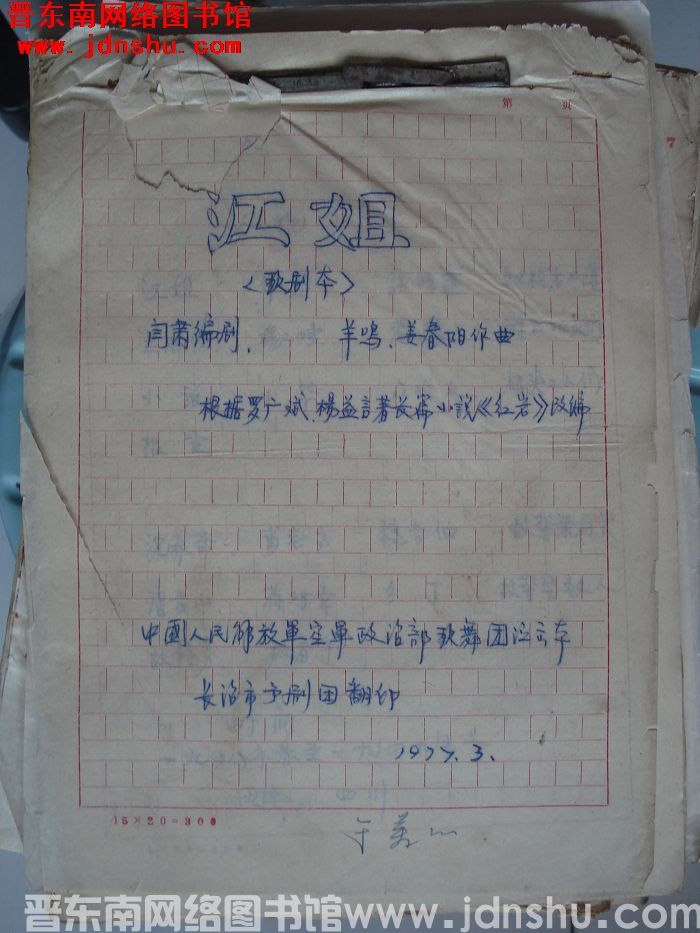 晋东南网络图书馆
www.jdnshu.com
第 页
7
江姐
〈歌剧本〉
闫肃编剧、 羊鸣、姜春阳作曲
根据罗广斌、楊益言著长篇小说《红岩》改编
中國人民解放軍空軍政治部歌舞团演出本
长治市予剧团翻印
1977.3.
15×20=300
晋东南网络图书馆www.jdnshu.com